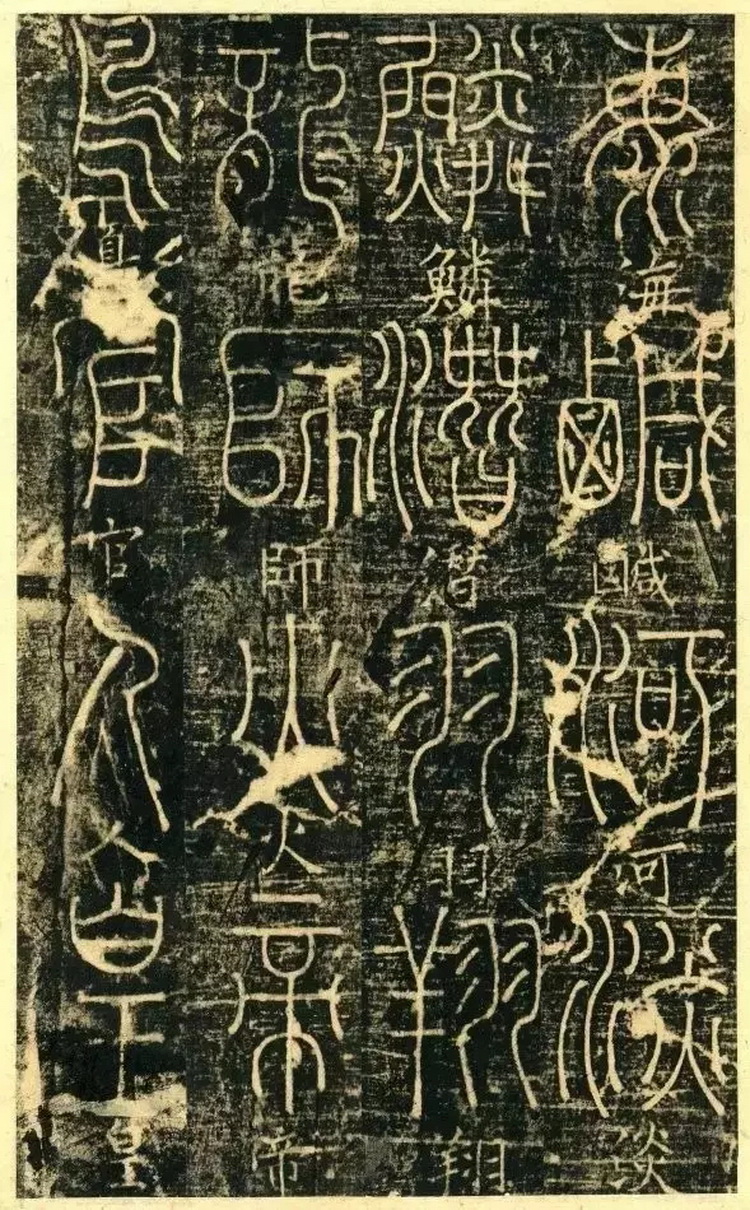 海鹹河淡
鱗潛羽翔
龍師火帝
鳥官人皇